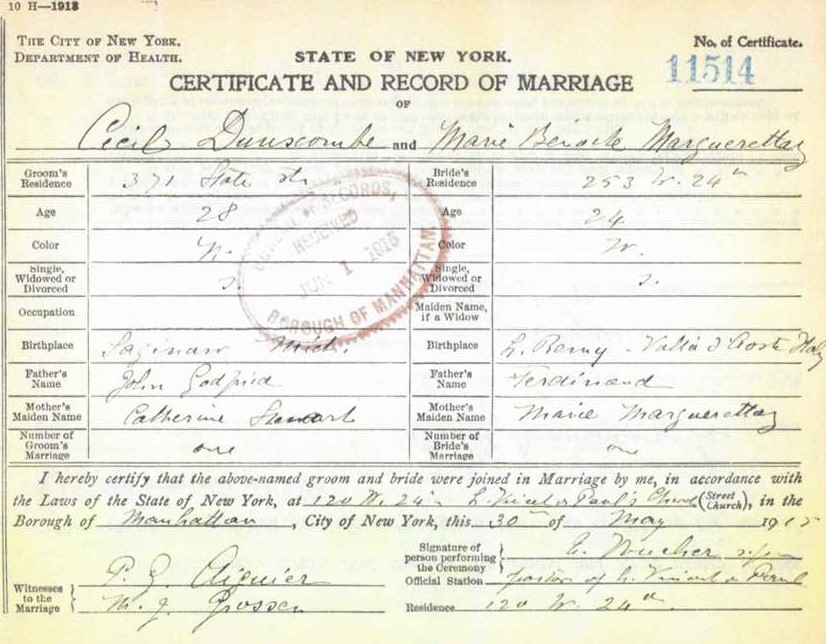 10 H—1913
THE CITY OF NEW YORK.
DEPARTMENT OF HEALTH.
STATE OF NEW YORK.
No. of Certificate.
11514
CERTIFICATE AND RECORD OF MARRIAGE
OF
Cecil Dunscombe and Marie Marguerettaz
Groom's Residence 371 State St. Bride's Residence 253 W. 24th
Age 28 Age 24
Color W. Color W.
Single, Widowed or Divorced S. Single, Widowed or Divorced S.
Occupation Maiden Name, if a Widow
Birthplace Saginaw Mich. Birthplace Italy
Father's Name John Godfried Father's Name Ferdinand
Mother's Maiden Name Catherine Stewart Mother's Maiden Name Marie Marguerettaz
Number of Groom's Marriage one Number of Bride's Marriage one
BUREAU OF RECORDS,
RECEIVED
JUN 1 1915
BOROUGH OF MANHATTAN.
I hereby certify that the above-named groom and bride were joined in Marriage by me, in accordance with
the Laws of the State of New York, at 120 W. 24th St. Vincent de Paul's Church (Street Church), in the
Borough of Manhattan, City of New York, this 30th of May 1915
Signature of person performing the Ceremony
Official Station Pastor of St. Vincent de Paul
Witnesses to the Marriage
Residence 120 W. 24th